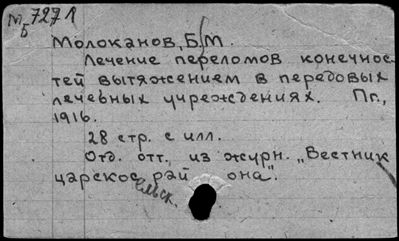 М 7271
Б
Молоканов, Б. М.
Лечение переломов конечнос-
тей вытяжением в передовых
лечебных учреждениях. Пг.,
1916.
28 стр. с илл.
Отд. отт., из журн. „Вестник
царскосельск. района".